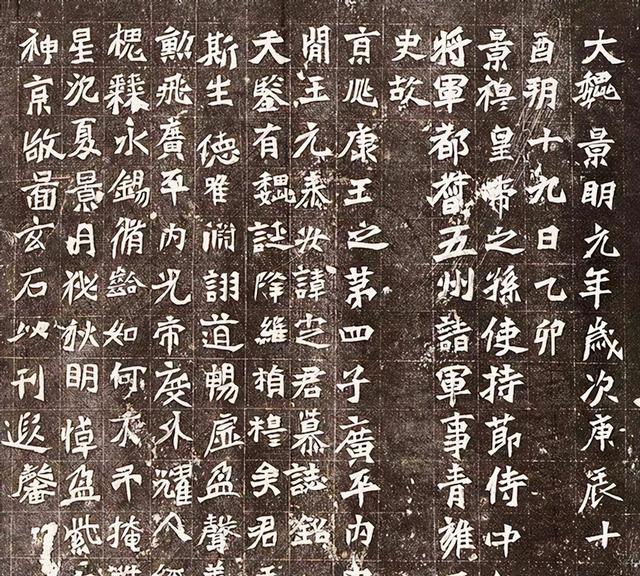 大魏景明元年歲次庚辰十
酉朔十九日乙卯
景穆皇帝之孫使持節侍中
將軍都督五州諸軍事青雍
史故
京兆康王之第四子廣平內
間王元泰安諱定君墓誌銘
天鑒有魏誕降維楨穆矣君
斯生德唯淵詡道暢虛盈聲
勳飛廣平內光帝度外耀人
永錫脩齡如何不弔掩
星沉夏景月秘秋明悼盈紫
神京敬啚玄石以刊遐馨